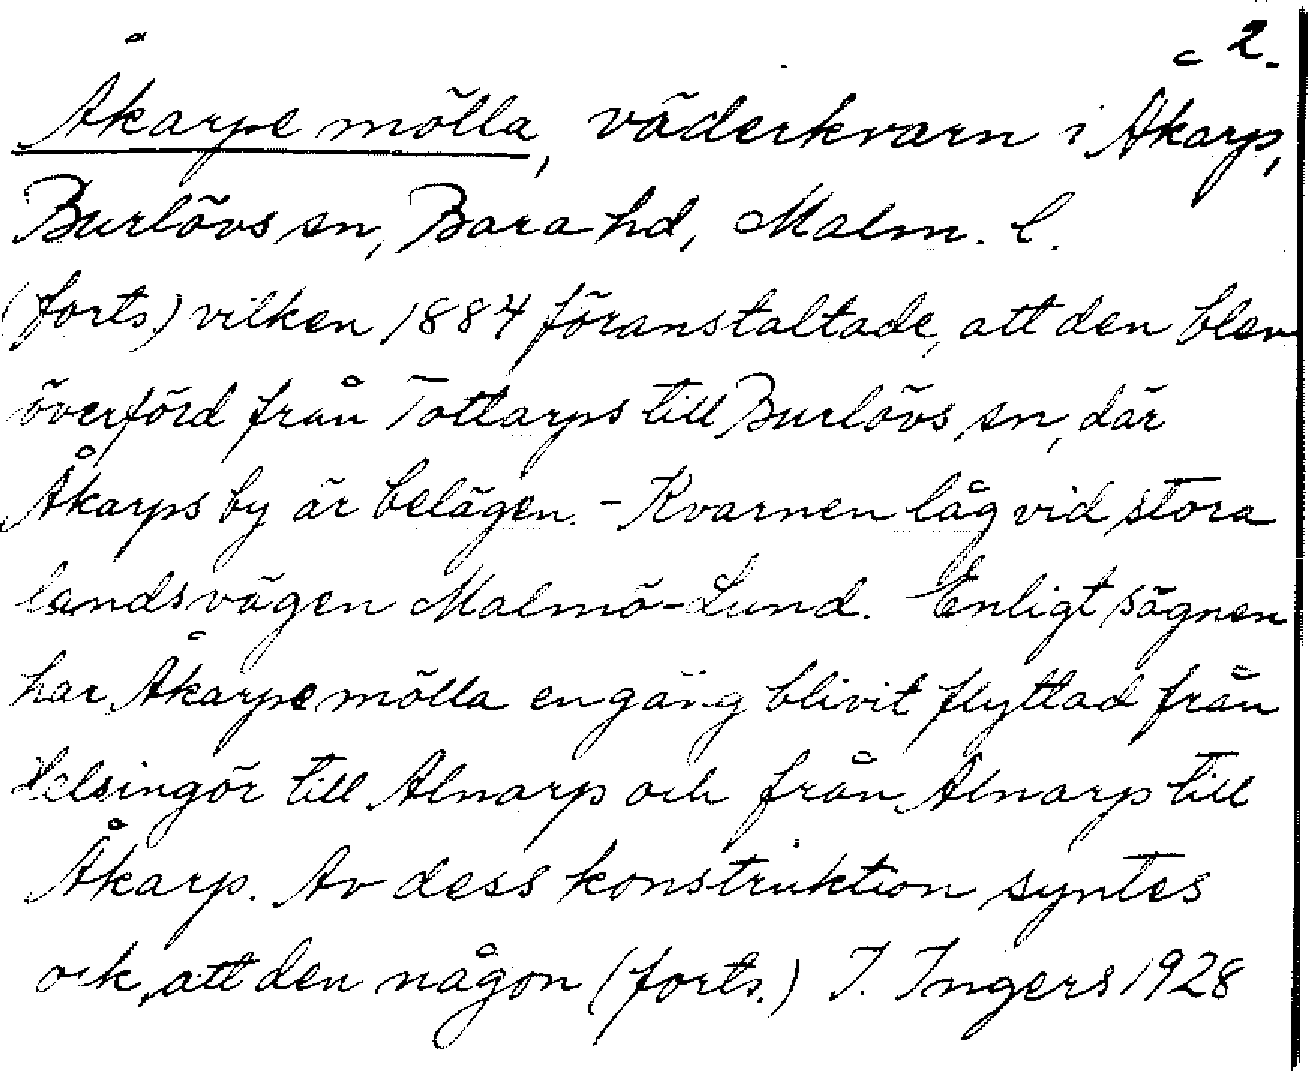 2.
Åkarpe mölla, väderkvarn i Åkarp,
Burlövs sn, Bara hd, Malm. l.
(forts.) vilken 1884 föranstaltade, att den blev
överförd från Tottarps till Burlövs sn, där
Åkarps by är belägen. - Kvarnen låg vid stora
landsvägen Malmö-Lund. Enligt sägnen
har Åkarpe mölla en gång blivit flyttad från
Helsingör till Alnarp och från Alnarp till
Åkarp. Av dess konstruktion syntes
ock, att den någon (forts.) I. Ingers 1928